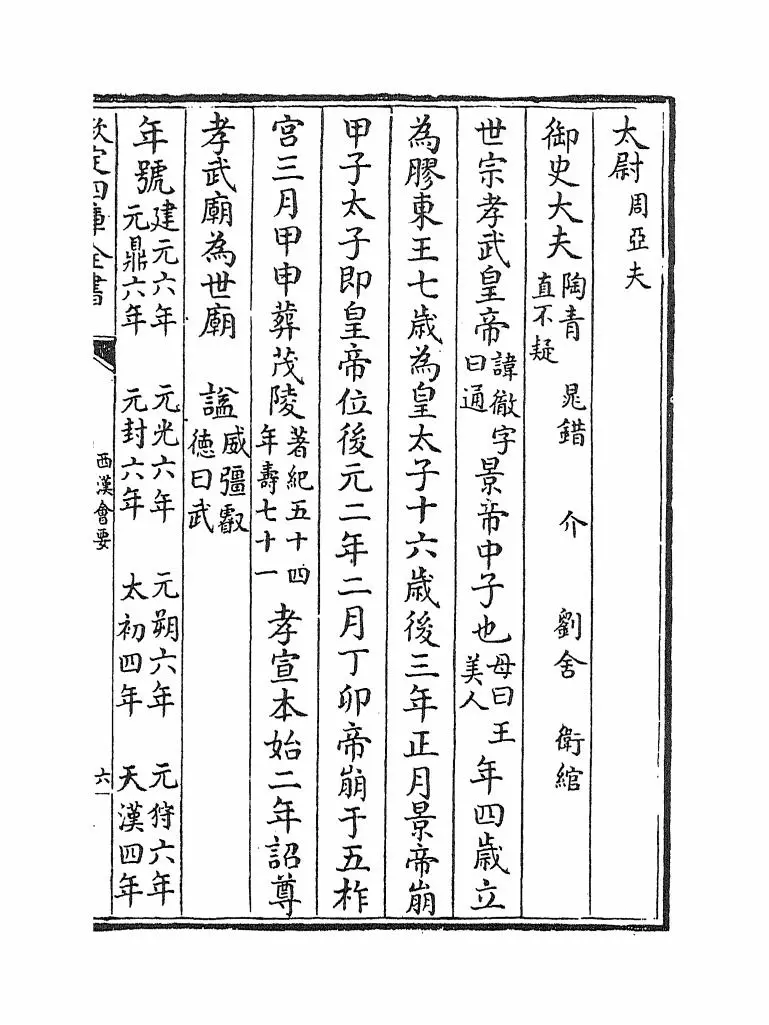 太尉周亞夫
御史大夫陶青 鼂錯 介 劉舍 衛綰
直不疑
世宗孝武皇帝諱徹字曰通景帝中子也母曰王美人年四歲立
為膠東王七歲為皇太子十六歲後三年正月景帝崩
甲子太子即皇帝位後元二年二月丁卯帝崩于五柞
宮三月甲申葬茂陵著紀五十四年壽七十一孝宣本始二年詔尊
孝武廟為世廟 諡威彊叡德曰武
年號建元六年 元光六年 元朔六年 元狩六年
元鼎六年 元封六年 太初四年 天漢四年
欽定四庫全書
西漢會要
六